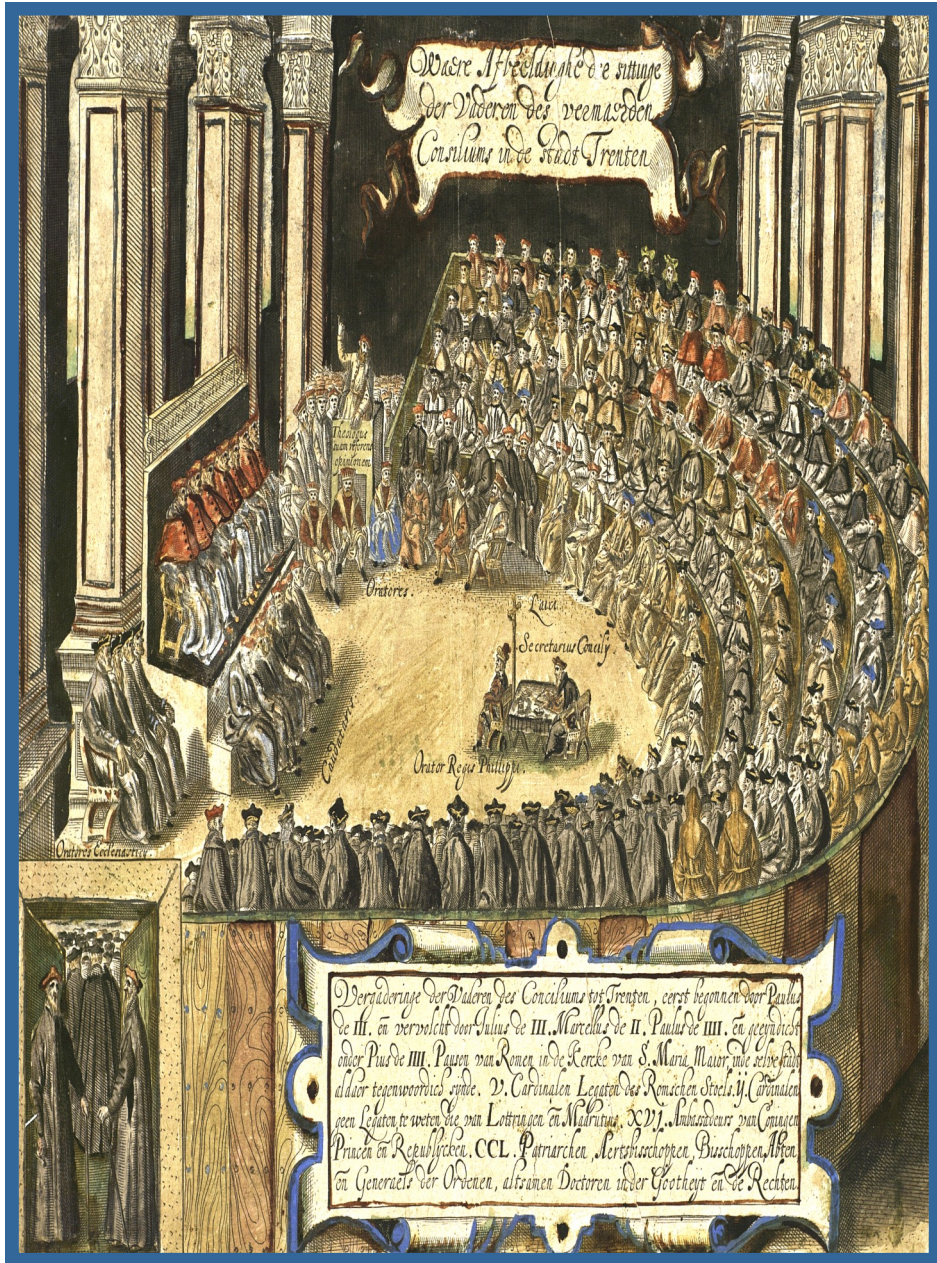 Waere Afbeeldinghe die sittinge
der Vaderen des vermaerden
Consiliums in de stadt Trenten
Theologus
suam referens
opinionem
Oratores.
Laici.
Secretarius Concilÿ
Orator Regis Phillippi.
Oratores Ecclesiastici.
Vergaderinge der Vaderen des Conciliums tot Trenten, eerst begonnen door Paulus
de III. en vervolcht door Iulius de III. Marcellus de II. Paulus de IIII. en geeyndicht
onder Pius de IIII. Pausen van Romen in de Kercke van S. Maria Maior, inde selve stadt
aldaer tegenwoordich synde. V. Cardinalen Legaten des Romschen Stoels. ij. Cardinalen
geen Legaten te weten die van Lottringen en Madrutius. XVJ. Ambassadeurs van Coningen
Princen en Republÿcken. CCL. Patriarchen, Aertsbisschoppen, Bisschoppen, Abten
en Generaels der Ordenen, altsamen Doctoren in der Gootheyt en de Rechten